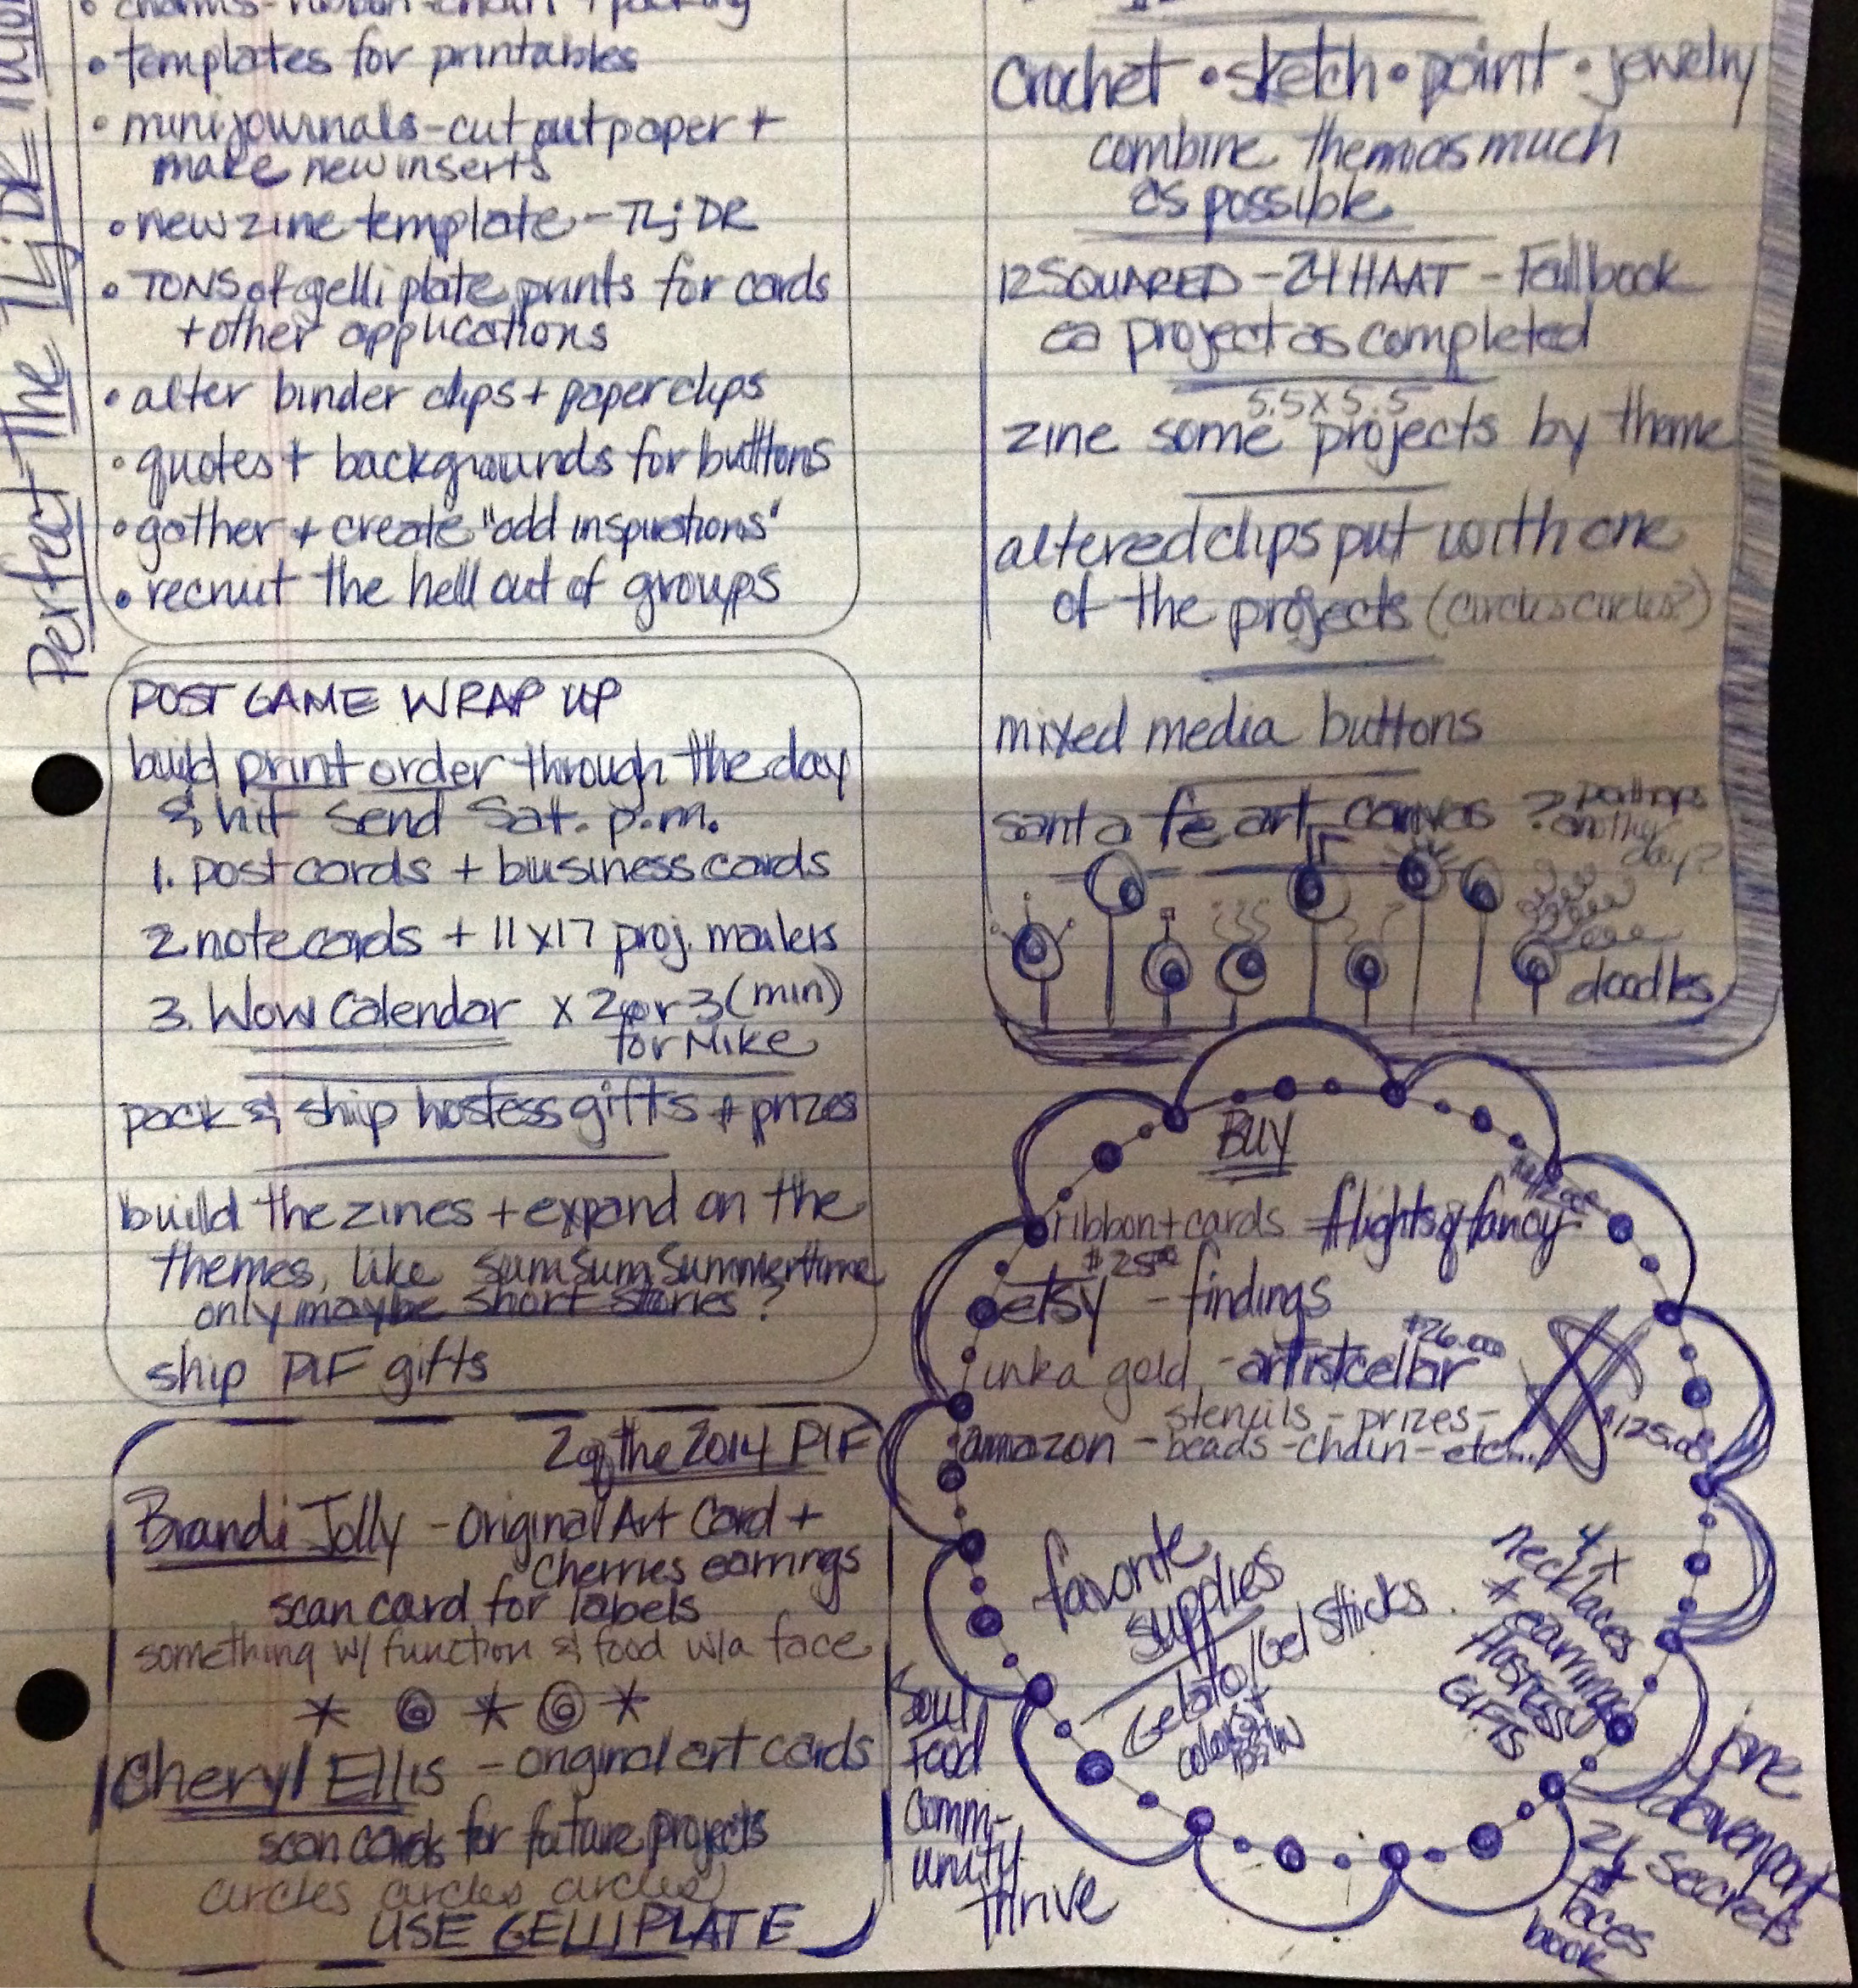 Perfect the TL;DR
• charms - ribbon - chain + packing
• templates for printables
• mini journals - cut out paper +
make new inserts
• new zine template - TL;DR
• TONS of gelli plate prints for cards
+ other applications
• alter binder clips + paper clips
• quotes + backgrounds for buttons
• gather + create "odd inspirations"
• recruit the hell out of groups
POST GAME WRAP UP
build print order through the day
& hit send Sat. p.m.
1. post cards + business cards
2 note cards + 11x17 proj. mailers
3. Wow Calendar x 2 or 3 (min)
for Mike
pack & ship hostess gifts + prizes
build the zines + expand on the
themes, like SumSumSummertime
only maybe short stories?
ship PIF gifts
2 of the 2014 PIF
Brandi Jolly - Original Art Card +
Cherries earrings
scan card for labels
something w/ function & food w/a face
Cheryl Ellis - original art cards
scan cards for future projects
circles circles circles
USE GELLI PLATE
Crochet • sketch • paint • jewelry
combine them as much
as possible
12 SQUARED - 24 HAAT - Fall book
ea project as completed
5.5 x 5.5
zine some projects by theme
altered clips put with one
of the projects (circles circles?)
mixed media buttons
santa fe art canvas ? perhaps
another
day?
doodles
BUY
ribbon + cards flights of fancy
$25.00
etsy - findings
$26.00
inka gold - artistcellar
stencils - prizes -
amazon - beads - chain - etc...
$125.00
favorite
supplies
Gelato/Gel Sticks
4
necklaces +
+ earrings
Hostess
GIFTS
Soul
Food
Comm-
unity
thrive
jane
davenport
21 secrets
+
faces
book